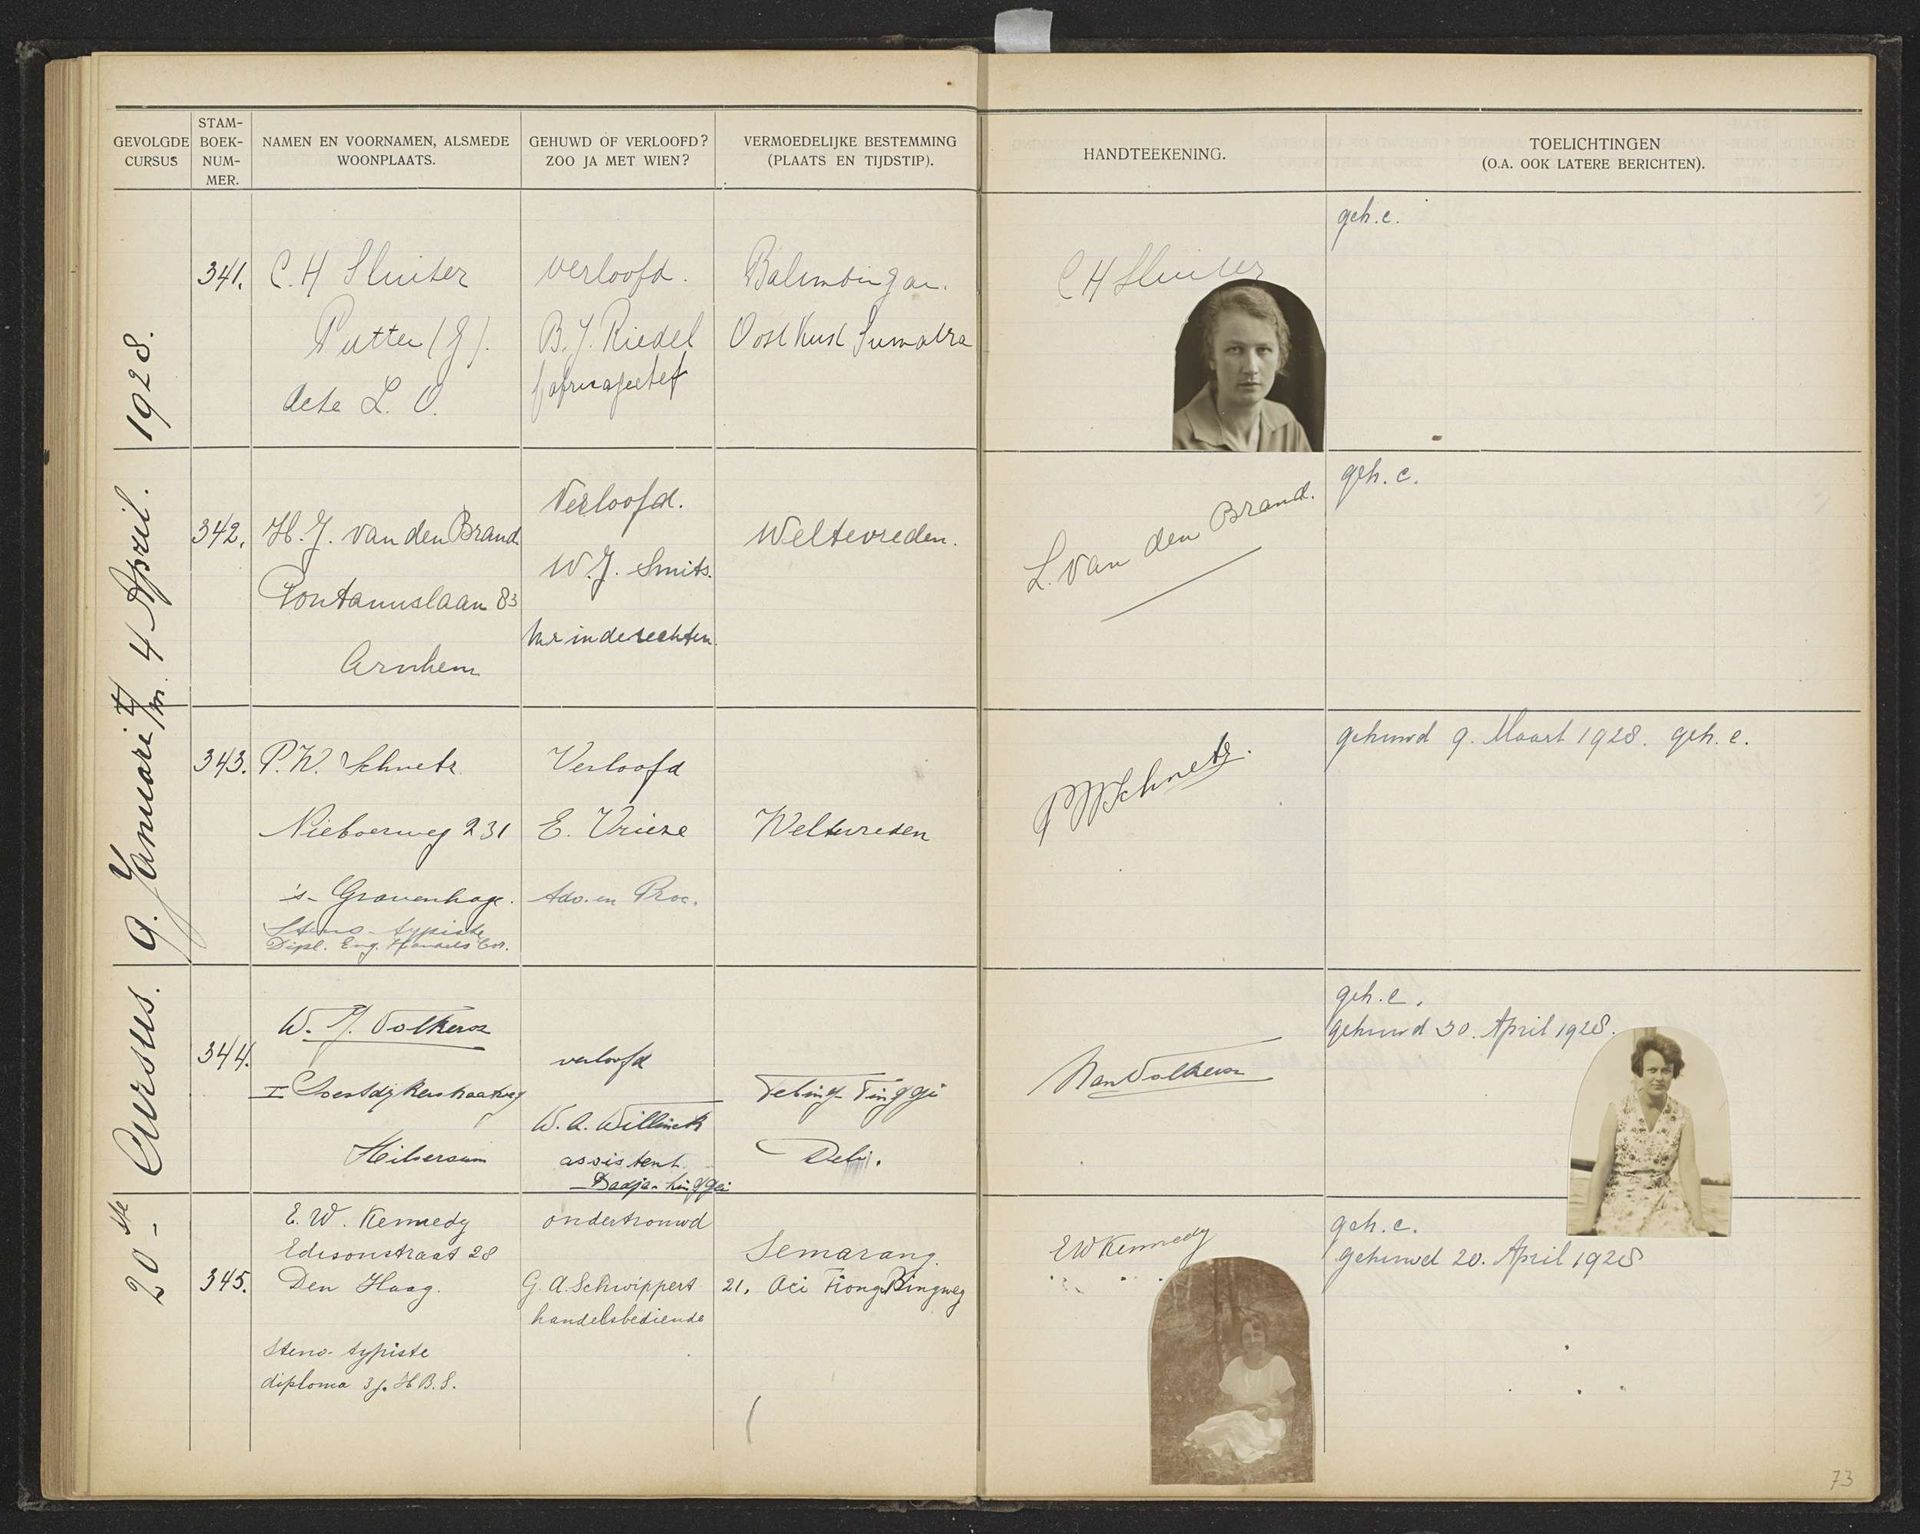 GEVOLGDE CURSUS
STAM-BOEK-NUM-MER.
NAMEN EN VOORNAMEN, ALSMEDE WOONPLAATS.
GEHUWD OF VERLOOFD? ZOO JA MET WIEN?
VERMOEDELIJKE BESTEMMING (PLAATS EN TIJDSTIP).
HANDTEEKENING.
TOELICHTINGEN (O.A. OOK LATERE BERICHTEN).
20ste Cursus. 9. Januari t/m. 4 April. 1928.
341.
C. H Sluiter
Putten (G).
Acte L. O.
verloofd.
B. J. Riedel
Balimbingan.
Oost Kust Sumatra
C H Sluiter
geh. c.
342.
H. J. van den Brand
Pontanuslaan 83
Arnhem
Verloofd.
W. J. Smits.
Mr in de rechten.
Weltevreden.
L. van den Brand.
geh. c.
343.
P. W. Schnetz
Nieboerweg 231
's-Gravenhage.
Steno-typiste
Dipl. Eng. Handels Cor.
Verloofd
E. Vrieze
Adv. en Proc.
Weltevreden
P W Schnetz.
gehuwd 9. Maart 1928. geh. c.
344.
W. J. Volkersz
Soestdijkerstraatweg
Hilversum
verloofd
W. A. Willinck
assistent
Tebing Tinggi
Deli.
geh. c.
gehuwd 30. April 1928.
345.
E. W. Kennedy
Edisonstraat 28
Den Haag.
Steno-typiste
diploma 3 j. H B. S.
ondertrouwd
G. A. Schwippert
handelsbediende
Semarang.
21,
E W Kennedy
geh. c.
gehuwd 20. April 1928
73